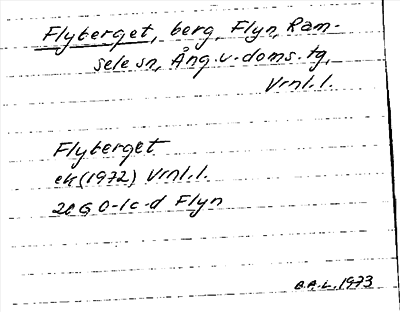 Flyberget, berg, Flyn, Ram-
sele sn, Ång. v. doms. tg,
Vrnl. l.
Flyberget
ek (1972) Vrnl. l.
20G 0-1c-d Flyn
B.A.L. 1973